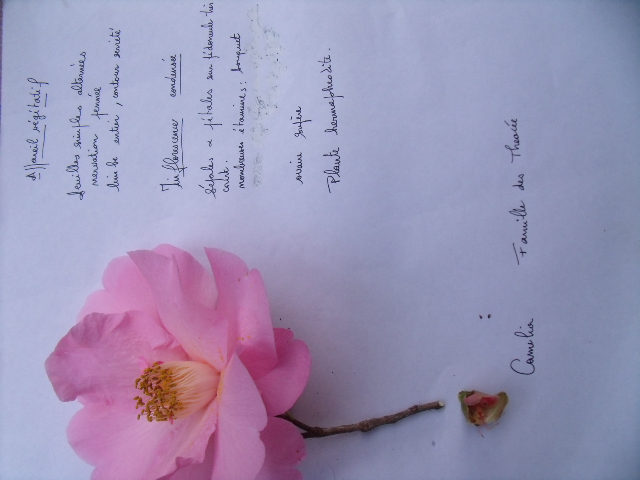 Appareil végétatif
feuilles simples alternées
nervation pennée
limbe entier, contour
Inflorescence condensée
Sépales et pétales sur pédoncule très
court.
nombreuses étamines: bouquet
ovaire supère
Plante hermaphrodite.
Camelia Famille des Theacée